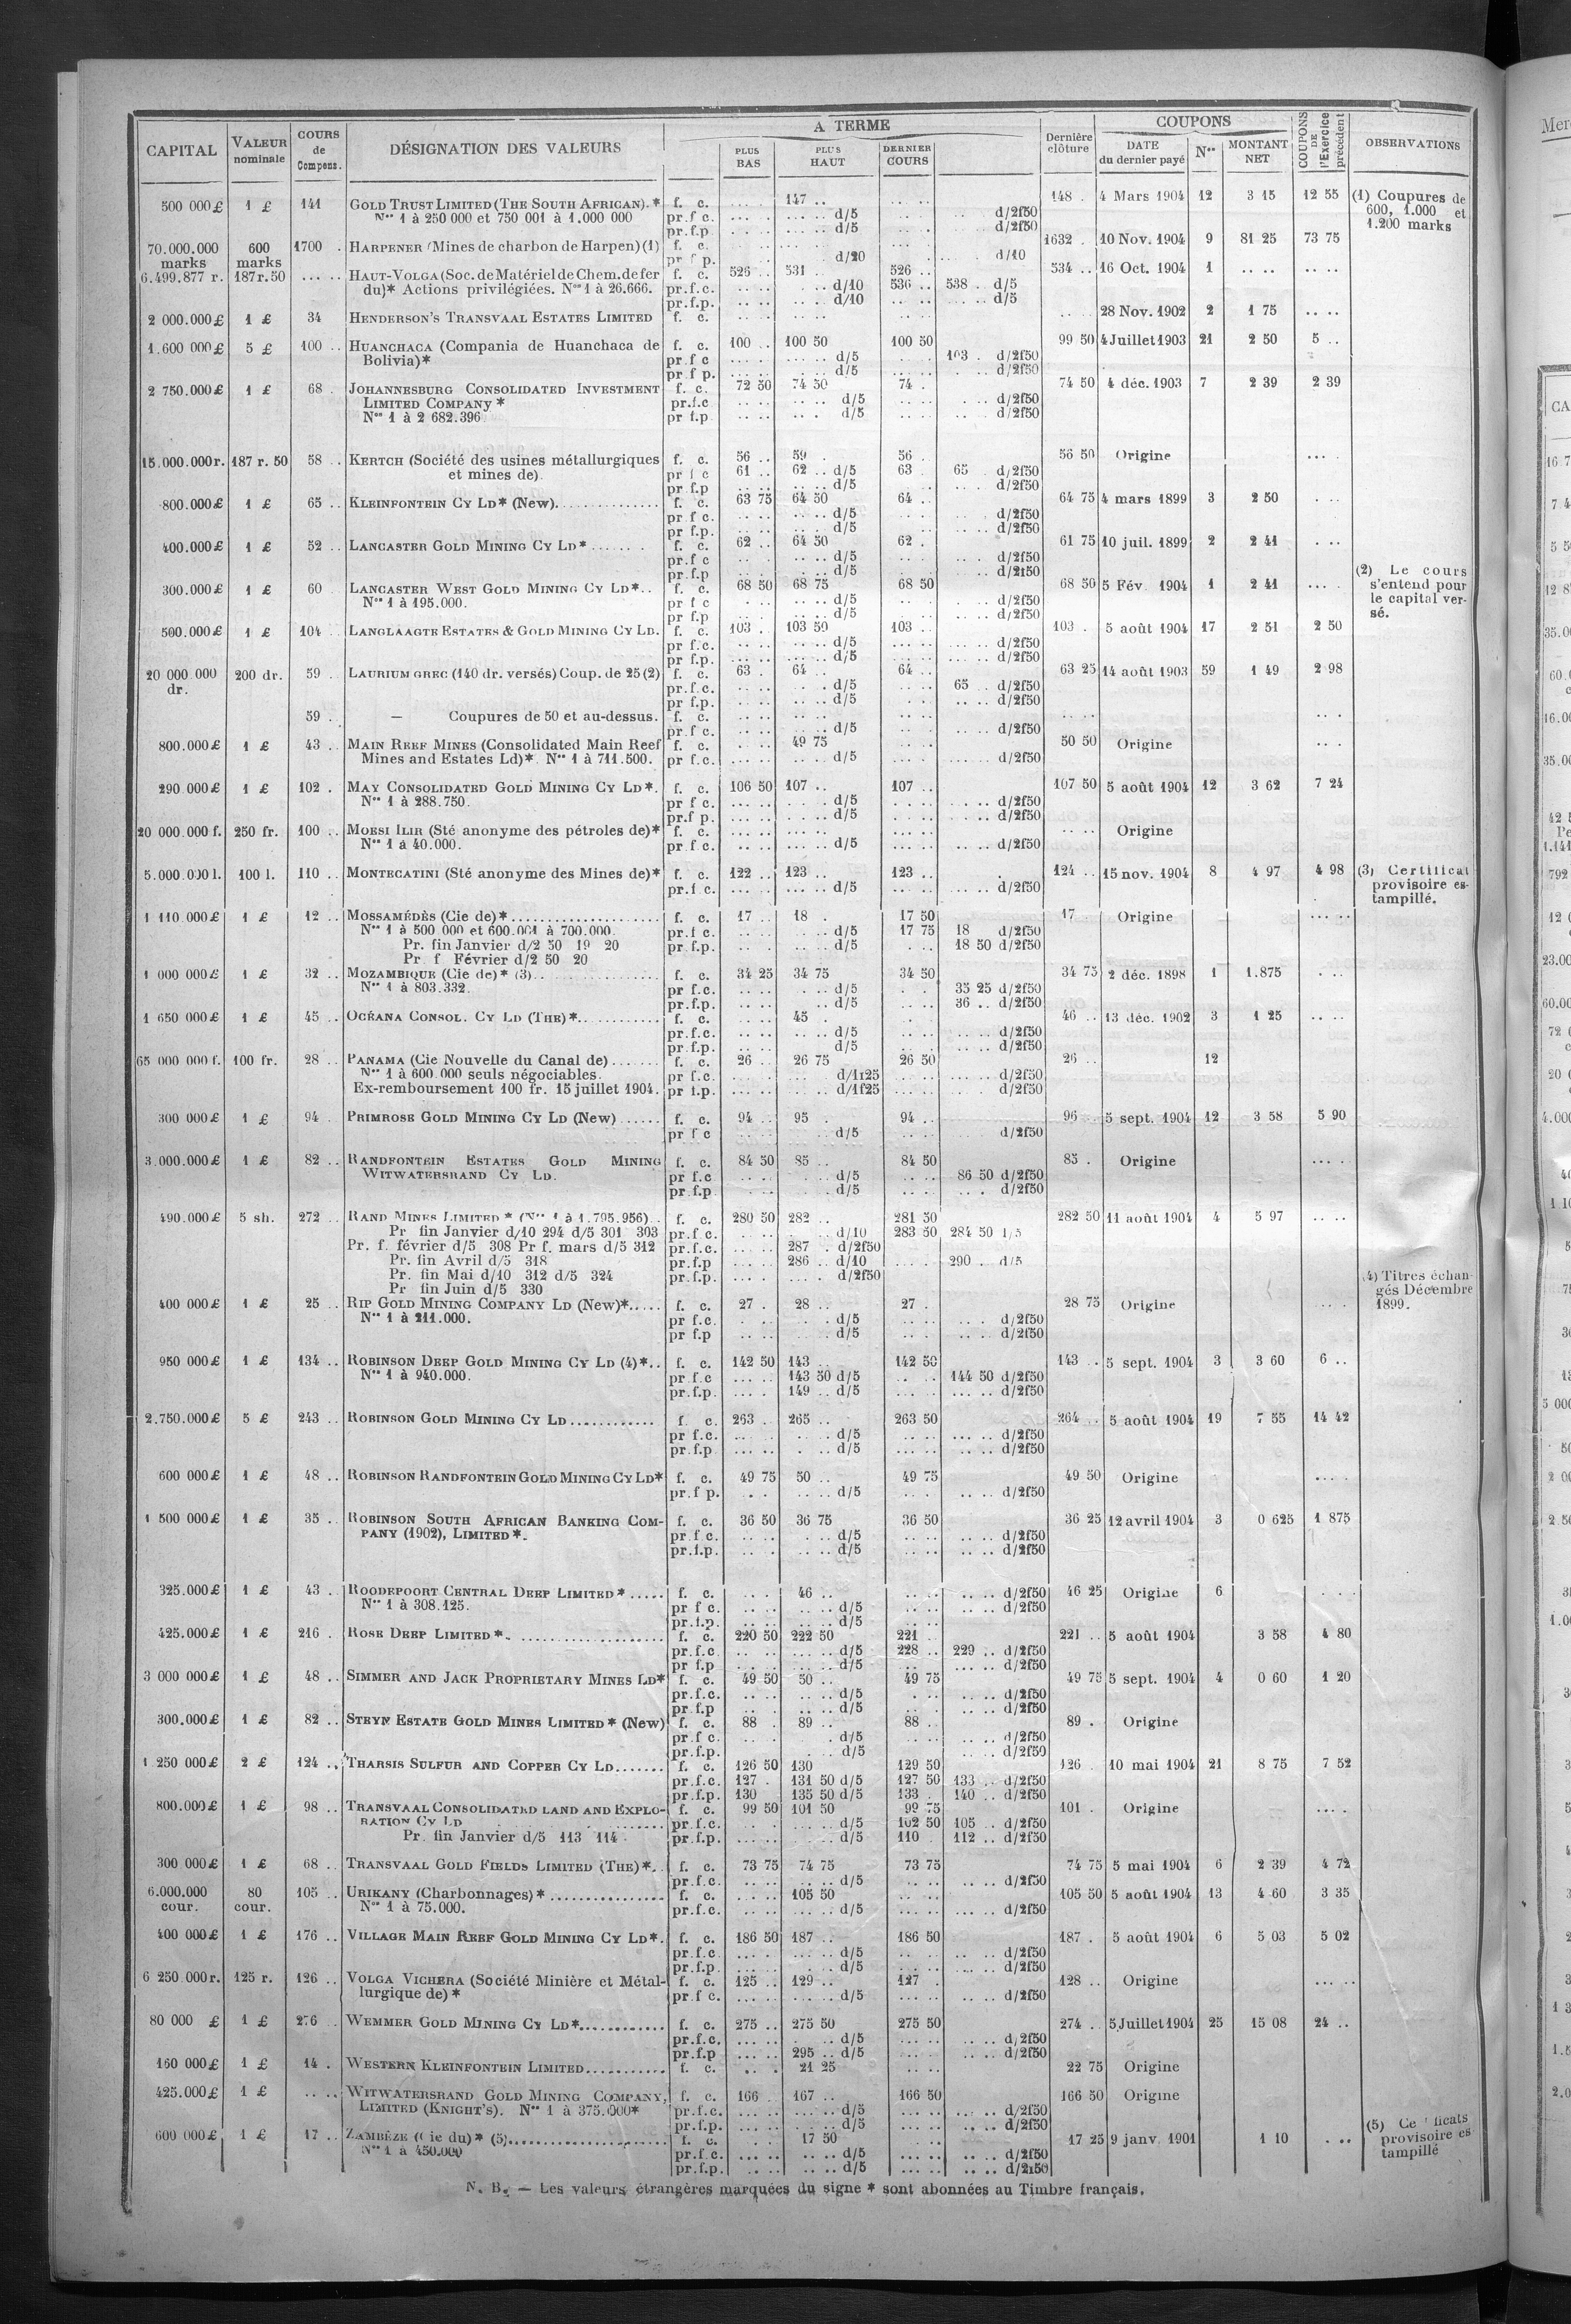 CAPITAL | VALEUR nominale | COURS de Compens. | DÉSIGNATION DES VALEURS | A TERME | PLUS BAS | PLUS HAUT | DERNIER COURS | Dernière clôture | COUPONS | DATE du dernier payé | Nos | MONTANT NET | COUPONS DE l'Exercice précédent | OBSERVATIONS
500 000 £ 1 £ 141 GOLD TRUST LIMITED (THE SOUTH AFRICAN).* f. c. 147 .. 148 . 4 Mars 1904 12 3 15 12 55 (1) Coupures de
Nos 1 à 250 000 et 750 001 à 1.000 000 pr.f c. d/5 d/2f50 600, 1.000 et
pr.f.p. d/5 d/2f50 1.200 marks
70.000.000 600 1700 . HARPENER (Mines de charbon de Harpen) (1) f. c. 1632 . 10 Nov. 1904 9 81 25 73 75
marks marks pr f p. d/20 d/10
6.499.877 r. 187r.50 HAUT-VOLGA (Soc. de Matériel de Chem. de fer f. c. 526 .. 531 .. 526 .. 534 .. 16 Oct. 1904 1
du)* Actions privilégiées. Nos 1 à 26.666. pr.f.c. d/10 536 .. 538 . d/5
pr.f.p. d/10 d/5
2 000.000 £ 1 £ 34 HENDERSON'S TRANSVAAL ESTATES LIMITED f. c. 28 Nov. 1902 2 1 75
1.600 000 £ 5 £ 100 .. HUANCHACA (Compania de Huanchaca de f. c. 100 .. 100 50 100 50 99 50 4 Juillet 1903 21 2 50 5 ..
Bolivia)* pr f c d/5 103 . d/2f50
pr f p. d/5 d/2f50
2 750.000 £ 1 £ 68 . JOHANNESBURG CONSOLIDATED INVESTMENT f. c. 72 50 74 50 74 . 74 50 4 déc. 1903 7 2 39 2 39
LIMITED COMPANY * pr.f.c d/5 d/2f50
Nos 1 à 2 682.396 pr f.p d/5 d/2f50
15.000.000 r. 187 r. 50 58 .. KERTCH (Société des usines métallurgiques f. c. 56 .. 59 . 56 . 56 50 Origine
et mines de). pr f c 61 .. 62 .. d/5 63 . 65 . d/2f50
pr f.p d/5 d/2f50
800.000 £ 1 £ 65 .. KLEINFONTEIN CY LD* (New) f. c. 63 75 64 50 64 .. 64 75 4 mars 1899 3 2 50
pr f c. d/5 d/2f50
pr f.p. d/5 d/2f50
400.000 £ 1 £ 52 .. LANCASTER GOLD MINING CY LD* f. c. 62 .. 64 50 62 . 61 75 10 juil. 1899 2 2 41
pr.f c d/5 d/2f50
pr.f.p d/5 d/2f50 (2) Le cours
300.000 £ 1 £ 60 LANCASTER WEST GOLD MINING CY LD*.. f. c. 68 50 68 75 68 50 68 50 5 Fév. 1904 1 2 41 s'entend pour
Nos 1 à 195.000. pr f c d/5 d/2f50 le capital ver-
pr f.p d/5 d/2f50 sé.
500.000 £ 1 £ 104 LANGLAAGTE ESTATES & GOLD MINING CY LD. f. c. 103 . 103 50 103 .. 103 . 5 août 1904 17 2 51 2 50
pr f.c. d/5 d/2f50
pr f.p. d/5 d/2f50
20 000 000 200 dr. 59 .. LAURIUM GREC (140 dr. versés) Coup. de 25 (2) f. c. 63 . 64 .. 64 .. 63 25 14 août 1903 59 1 49 2 98
dr. pr.f.c. d/5 65 .. d/2f50
pr f.p. d/5 d/2f50
59 .. — Coupures de 50 et au-dessus. f. c.
pr.f c. d/5 d/2f50
800.000 £ 1 £ 43 .. MAIN REEF MINES (Consolidated Main Reef f. c. 49 75 50 50 Origine
Mines and Estates Ld)*. Nos 1 à 711.500. pr f.c. d/5 d/2f50
290 000 £ 1 £ 102 . MAY CONSOLIDATED GOLD MINING CY LD*. f. c. 106 50 107 .. 107 .. 107 50 5 août 1904 12 3 62 7 24
Nos 1 à 288.750. pr f c. d/5 d/2f50
pr.f p. d/5 d/2f50
20 000.000 f. 250 fr. 100 .. MOKSI ILIR (Sté anonyme des pétroles de)* f. c. Origine
Nos 1 à 40.000. pr f c. d/5 d/2f50
5.000.000 l. 100 l. 110 .. MONTECATINI (Sté anonyme des Mines de)* f. c. 122 .. 123 .. 123 .. 124 .. 15 nov. 1904 8 4 97 4 98 (3) Certificat
pr.f c. d/5 d/2f50 provisoire es-
tampillé.
1 110.000 £ 1 £ 12 .. MOSSAMÉDÈS (Cie de)* f. c. 17 .. 18 . 17 50 17 . Origine
Nos 1 à 500 000 et 600.001 à 700.000. pr.f c. d/5 17 75 18 d/2f50
Pr. fin Janvier d/2 50 19 20 pr.f.p. d/5 18 50 d/2f50
Pr f Février d/2 50 20
1 000 000 £ 1 £ 32 .. MOZAMBIQUE (Cie de)* (3) f. c. 34 25 34 75 34 50 34 75 2 déc. 1898 1 1.875
Nos 1 à 803.332. pr f.c. d/5 35 25 d/2f50
pr.f.p. d/5 36 .. d/2f50
1 650 000 £ 1 £ 45 .. OCÉANA CONSOL. CY LD (THE)* f. c. 45 . 46 .. 13 déc. 1902 3 1 25
pr.f.c. d/5 d/2f50
pr.f.p. d/5 d/2f50
65 000 000 f. 100 fr. 28 .. PANAMA (Cie Nouvelle du Canal de) f. c. 26 .. 26 75 26 50 26 .. 12
Nos 1 à 600.000 seuls négociables. pr f.c. d/1f25 d/2f50
Ex-remboursement 100 fr. 15 juillet 1904. pr f.p. d/1f25 d/2f50
300 000 £ 1 £ 94 . PRIMROSE GOLD MINING CY LD (New) f. c. 94 .. 95 . 94 .. 96 .. 5 sept. 1904 12 3 58 5 90
pr f c d/5 d/2f50
3.000.000 £ 1 £ 82 .. RANDFONTEIN ESTATES GOLD MINING f. c. 84 50 85 .. 84 50 85 . Origine
WITWATERSRAND CY LD. pr f.c d/5 86 50 d/2f50
pr.f.p d/5 d/2f50
490.000 £ 5 sh. 272 .. RAND MINES LIMITED * (Nos 1 à 1.795.956) f. c. 280 50 282 .. 281 50 282 50 11 août 1904 4 5 97
Pr fin Janvier d/10 294 d/5 301 303 pr.f c. d/10 283 50 284 50
Pr. f. février d/5 308 Pr f. mars d/5 312 pr.f.c. 287 . d/2f50
Pr. fin Avril d/5 318 pr.f.p 286 .. d/10 290 . d/5
Pr. fin Mai d/10 312 d/5 324 pr.f.p. d/2f50 (4) Titres échan-
Pr fin Juin d/5 330 gés Décembre
400 000 £ 1 £ 25 .. RIP GOLD MINING COMPANY LD (New)* f. c. 27 . 28 .. 27 . 28 75 Origine 1899.
Nos 1 à 211.000. pr f.c. d/5 d/2f50
pr f.p d/5 d/2f50
950 000 £ 1 £ 134 .. ROBINSON DEEP GOLD MINING CY LD (4)*.. f. c. 142 50 143 .. 142 50 143 .. 5 sept. 1904 3 3 60 6 ..
Nos 1 à 940.000. pr.f c 143 50 d/5 144 50 d/2f50
pr.f.p. 149 .. d/5 d/2f50
2.750.000 £ 5 £ 243 .. ROBINSON GOLD MINING CY LD f. c. 263 . 265 .. 263 50 264 .. 5 août 1904 19 7 55 14 42
pr f.c. d/5 d/2f50
pr.f.p d/5 d/2f50
600 000 £ 1 £ 48 .. ROBINSON RANDFONTEIN GOLD MINING CY LD* f. c. 49 75 50 .. 49 75 49 50 Origine
pr.f p. d/5 d/2f50
1 500 000 £ 1 £ 35 .. ROBINSON SOUTH AFRICAN BANKING COM- f. c. 36 50 36 75 36 50 36 25 12 avril 1904 3 0 625 1 875
PANY (1902), LIMITED *. pr f c. d/5 d/2f50
pr.f.p. d/5 d/2f50
325.000 £ 1 £ 43 .. ROODEPOORT CENTRAL DEEP LIMITED * f. c. 46 .. d/2f50 46 25 Origine 6
Nos 1 à 308.125. pr f c. d/5 d/2f50
pr.f.p. d/5
425.000 £ 1 £ 216 . ROSE DEEP LIMITED * f. c. 220 50 222 50 221 .. 221 .. 5 août 1904 3 58 4 80
pr.f.c d/5 228 .. 229 .. d/2f50
pr f.p d/5 d/2f50
3 000 000 £ 1 £ 48 .. SIMMER AND JACK PROPRIETARY MINES LD* f. c. 49 50 50 .. 49 75 49 75 5 sept. 1904 4 0 60 1 20
pr.f.c. d/5 d/2f50
pr f.p d/5 d/2f50
300.000 £ 1 £ 82 .. STEYN ESTATE GOLD MINES LIMITED * (New) f. c. 88 . 89 .. 88 .. 89 . Origine
pr.f c. d/5 d/2f50
pr.f.p. d/5 d/2f50
1 250 000 £ 2 £ 124 .. THARSIS SULFUR AND COPPER CY LD f. c. 126 50 130 129 50 126 . 10 mai 1904 21 8 75 7 52
pr.f.c. 127 . 131 50 d/5 127 50 133 .. d/2f50
pr.f.p. 130 135 50 d/5 133 . 140 .. d/2f50
800.000 £ 1 £ 98 .. TRANSVAAL CONSOLIDATED LAND AND EXPLO- f. c. 99 50 101 50 99 75 101 . Origine
RATION CY LD pr f.c. d/5 102 50 105 .. d/2f50
Pr. fin Janvier d/5 113 114 pr.f.p. d/5 110 . 112 .. d/2f50
300 000 £ 1 £ 68 .. TRANSVAAL GOLD FIELDS LIMITED (THE)*.. f. c. 73 75 74 75 73 75 74 75 5 mai 1904 6 2 39 4 72
pr.f.c. d/5 d/2f50
6.000.000 80 105 .. URIKANY (Charbonnages) * f. c. 105 50 105 50 5 août 1904 13 4 60 3 35
cour. cour. Nos 1 à 75.000. pr.f.c. d/5 d/2f50
400 000 £ 1 £ 176 .. VILLAGE MAIN REEF GOLD MINING CY LD*. f. c. 186 50 187 .. 186 50 187 . 5 août 1904 6 5 03 5 02
pr.f.c d/5 d/2f50
pr.f.p. d/5 d/2f50
6 250.000 r. 125 r. 126 .. VOLGA VICHERA (Société Minière et Métal- f. c. 125 .. 129 .. 127 . 128 .. Origine
lurgique de) * pr f c. d/5 d/2f50
80 000 £ 1 £ 276 .. WEMMER GOLD MINING CY LD* f. c. 275 .. 275 50 275 50 274 .. 5 Juillet 1904 25 15 08 24 ..
pr.f.c. d/5 d/2f50
pr.f.p 295 .. d/5 d/2f50
160 000 £ 1 £ 14 . WESTERN KLEINFONTEIN LIMITED f. c. 21 25 22 75 Origine
425.000 £ 1 £ WITWATERSRAND GOLD MINING COOMPANY, f. c. 166 . 167 .. 166 50 166 50 Origine
LIMITED (KNIGHT'S). Nos 1 à 375.000* pr.f.c. d/5 d/2f50
pr.f.p. d/5 d/2f50 (5) Ce ficats
600 000 £ 1 £ 17 .. ZAMBÈZE (Cie du) * (5) f. c. 17 50 17 25 9 janv. 1901 1 10 provisoire es
Nos 1 à 450.000 pr.f.c. d/5 d/2f50 tampillé
pr.f.p. d/5 d/2f50
N. B. — Les valeurs étrangères marquées du signe * sont abonnées au Timbre français.